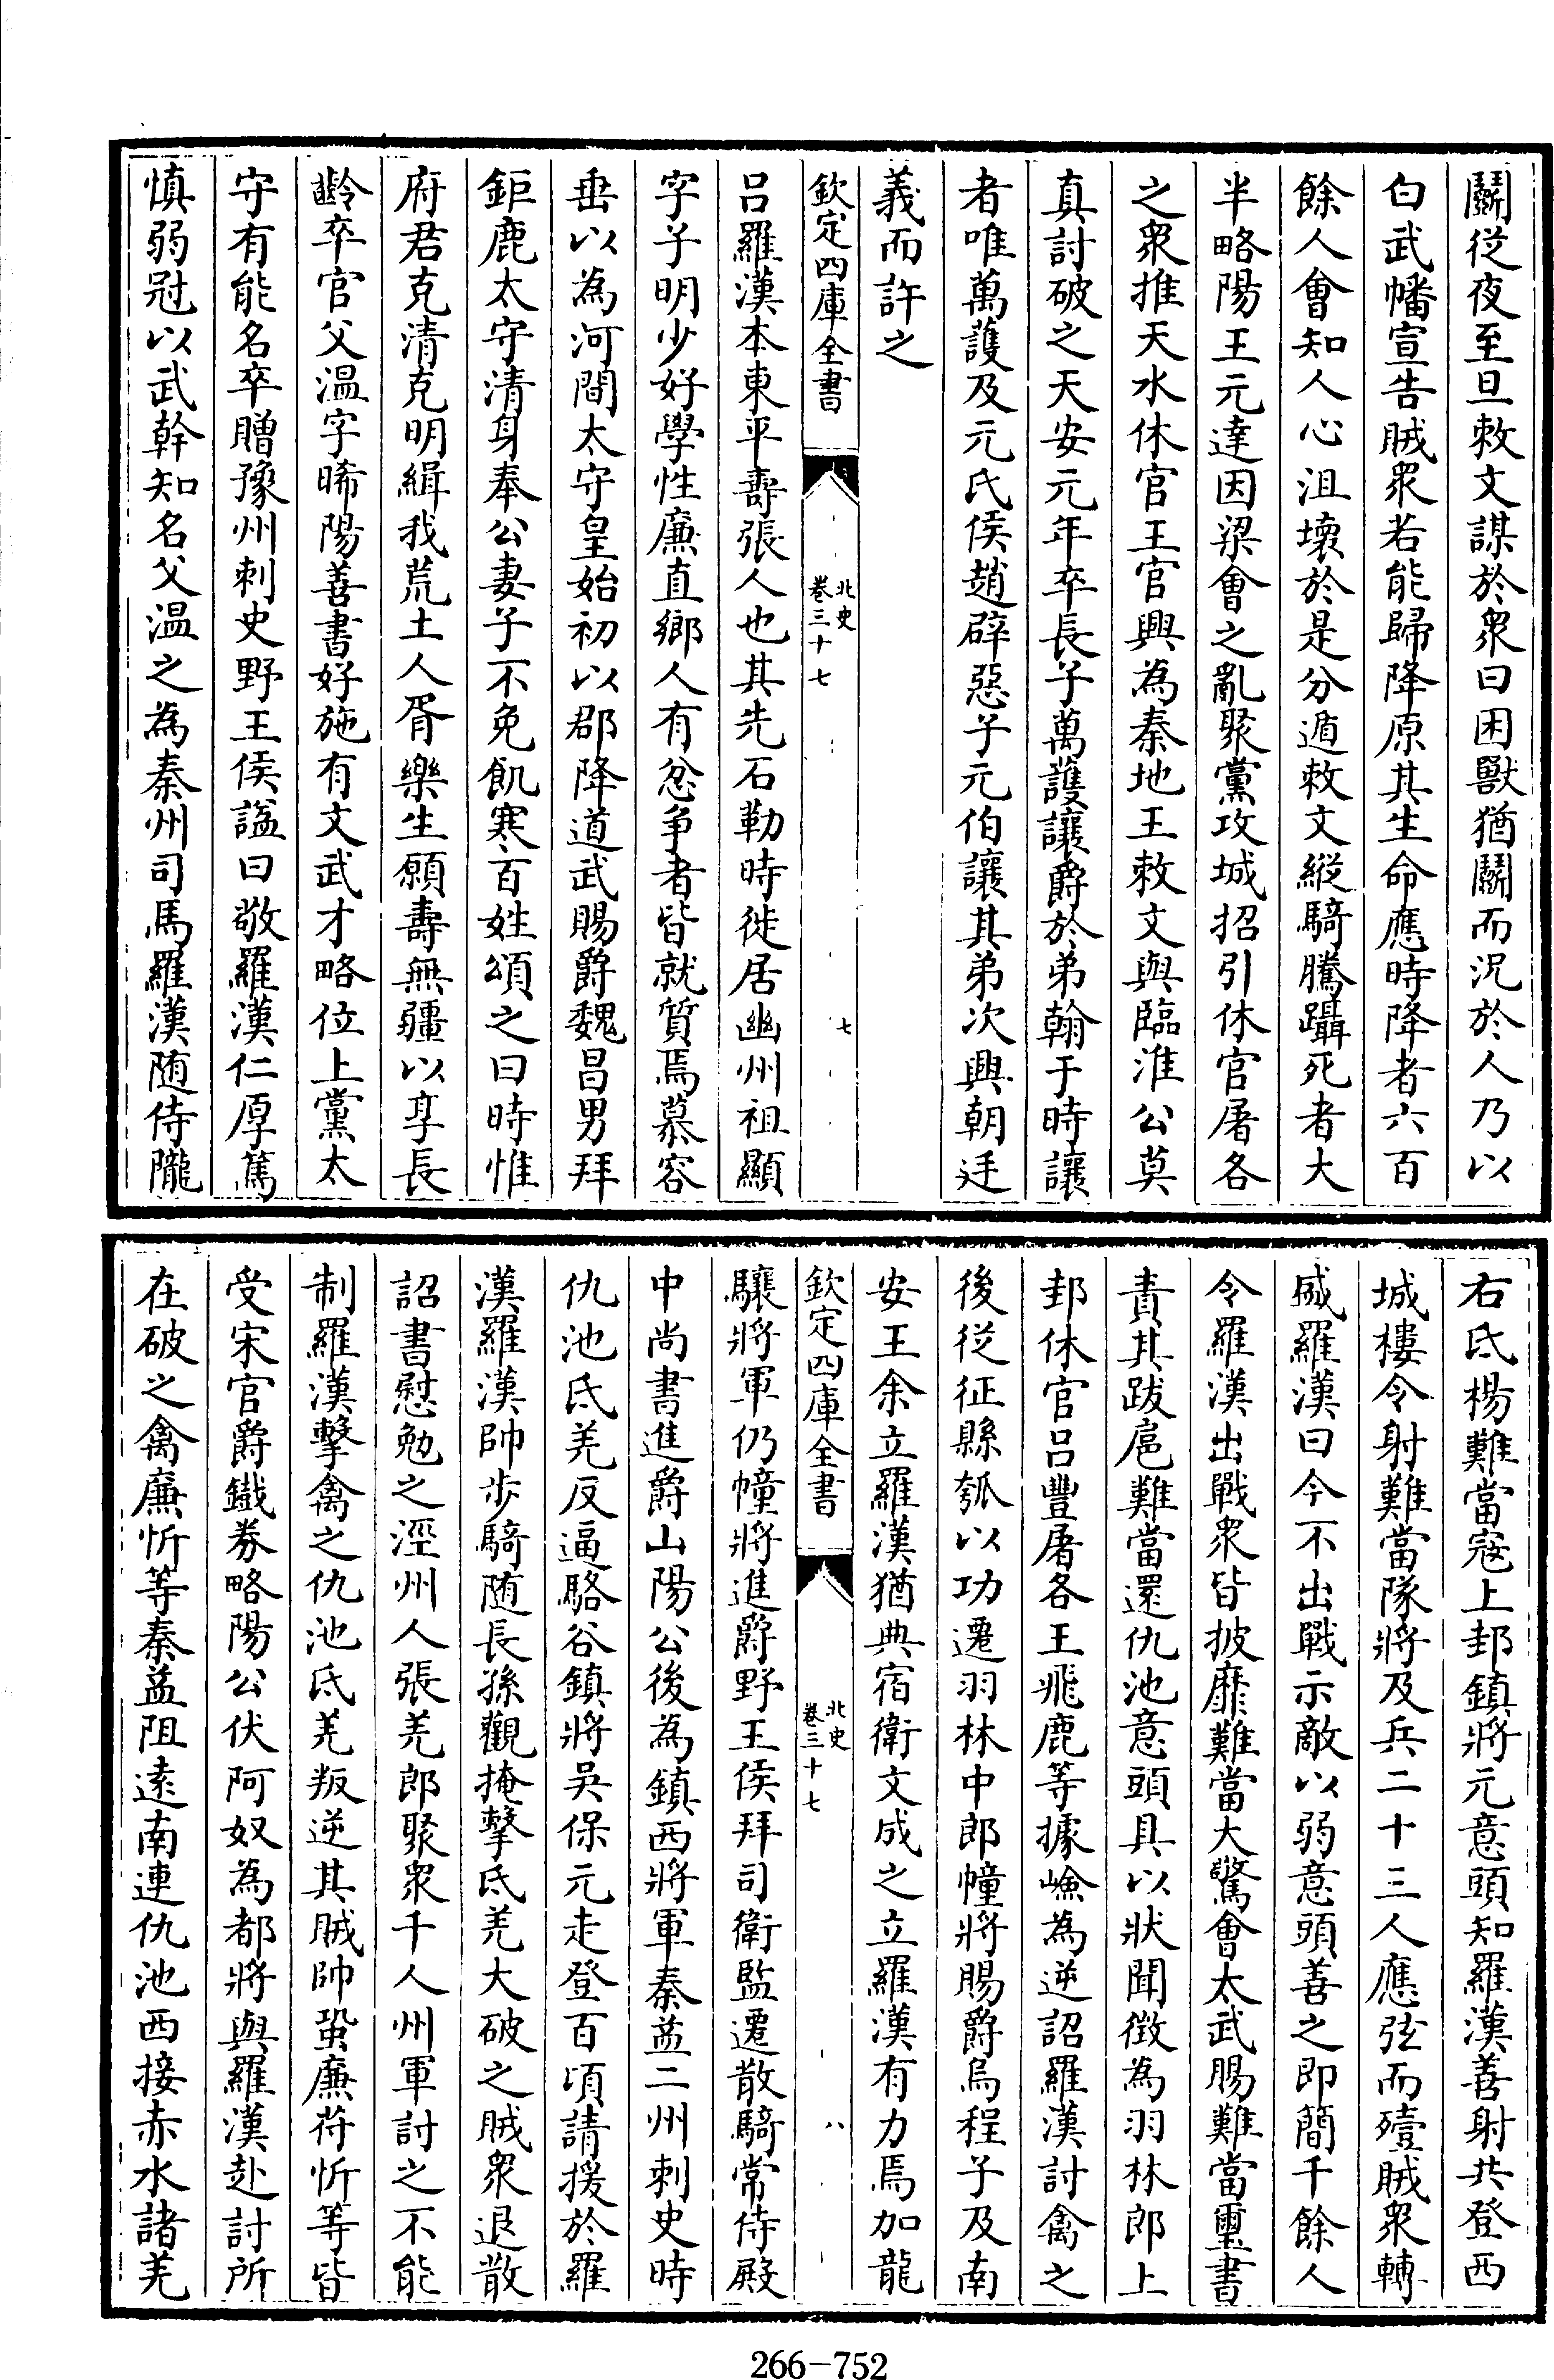 鬭從夜至旦敕文謀於衆曰困獸猶鬭而况於人乃以
白武幡宣告賊衆若能歸降原其生命應時降者六百
餘人會知人心沮壞於是分遁敕文縱騎騰躡死者大
半略陽王元達因梁會之亂聚黨攻城招引休官屠各
之衆推天水休官王官興為秦地王敕文與臨淮公莫
真討破之天安元年卒長子萬護讓爵於弟翰于時讓
者唯萬護及元氏侯趙辟惡子元伯讓其弟次興朝廷
義而許之
欽定四庫全書
北史
卷三十七
七
吕羅漢本東平壽張人也其先石勒時徙居幽州祖顯
字子明少好學性廉直鄉人有忿爭者皆就質焉慕容
垂以為河間太守皇始初以郡降道武賜爵魏昌男拜
鉅鹿太守清身奉公妻子不免飢寒百姓頌之曰時惟
府君克清克明緝我荒土人胥樂生願壽無疆以享長
齡卒官父温字晞陽善書好施有文武才略位上黨太
守有能名卒贈豫州刺史野王侯諡曰敬羅漢仁厚篤
慎弱冠以武幹知名父温之為秦州司馬羅漢随侍隴
右氐楊難當宼上邽鎮將元意頭知羅漢善射共登西
城樓令射難當隊將及兵二十三人應弦而殪賊衆轉
盛羅漢曰今不出戰示敵以弱意頭善之即簡千餘人
令羅漢出戰衆皆披靡難當大驚會太武賜難當璽書
責其跋扈難當還仇池意頭具以狀聞徵為羽林郎上
邽休官吕豐屠各王飛鹿等據嶮為逆詔羅漢討禽之
後從征縣瓠以功遷羽林中郎幢將賜爵烏程子及南
安王余立羅漢猶典宿衛文成之立羅漢有力焉加龍
欽定四庫全書
北史
卷三十七
八
驤將軍仍幢將進爵野王侯拜司衛監遷散騎常侍殿
中尚書進爵山陽公後為鎮西將軍秦益二州刺史時
仇池氐羌反逼駱谷鎮將吳保元走登百頃請援於羅
漢羅漢帥步騎随長孫觀掩擊氐羌大破之賊衆退散
詔書慰勉之涇州人張羌郎聚衆千人州軍討之不能
制羅漢擊禽之仇池氐羌叛逆其賊帥蛩廉苻忻等皆
受宋官爵鐵券略陽公伏阿奴為都將與羅漢赴討所
在破之禽廉忻等秦益阻逺南連仇池西接赤水諸羌
266-752